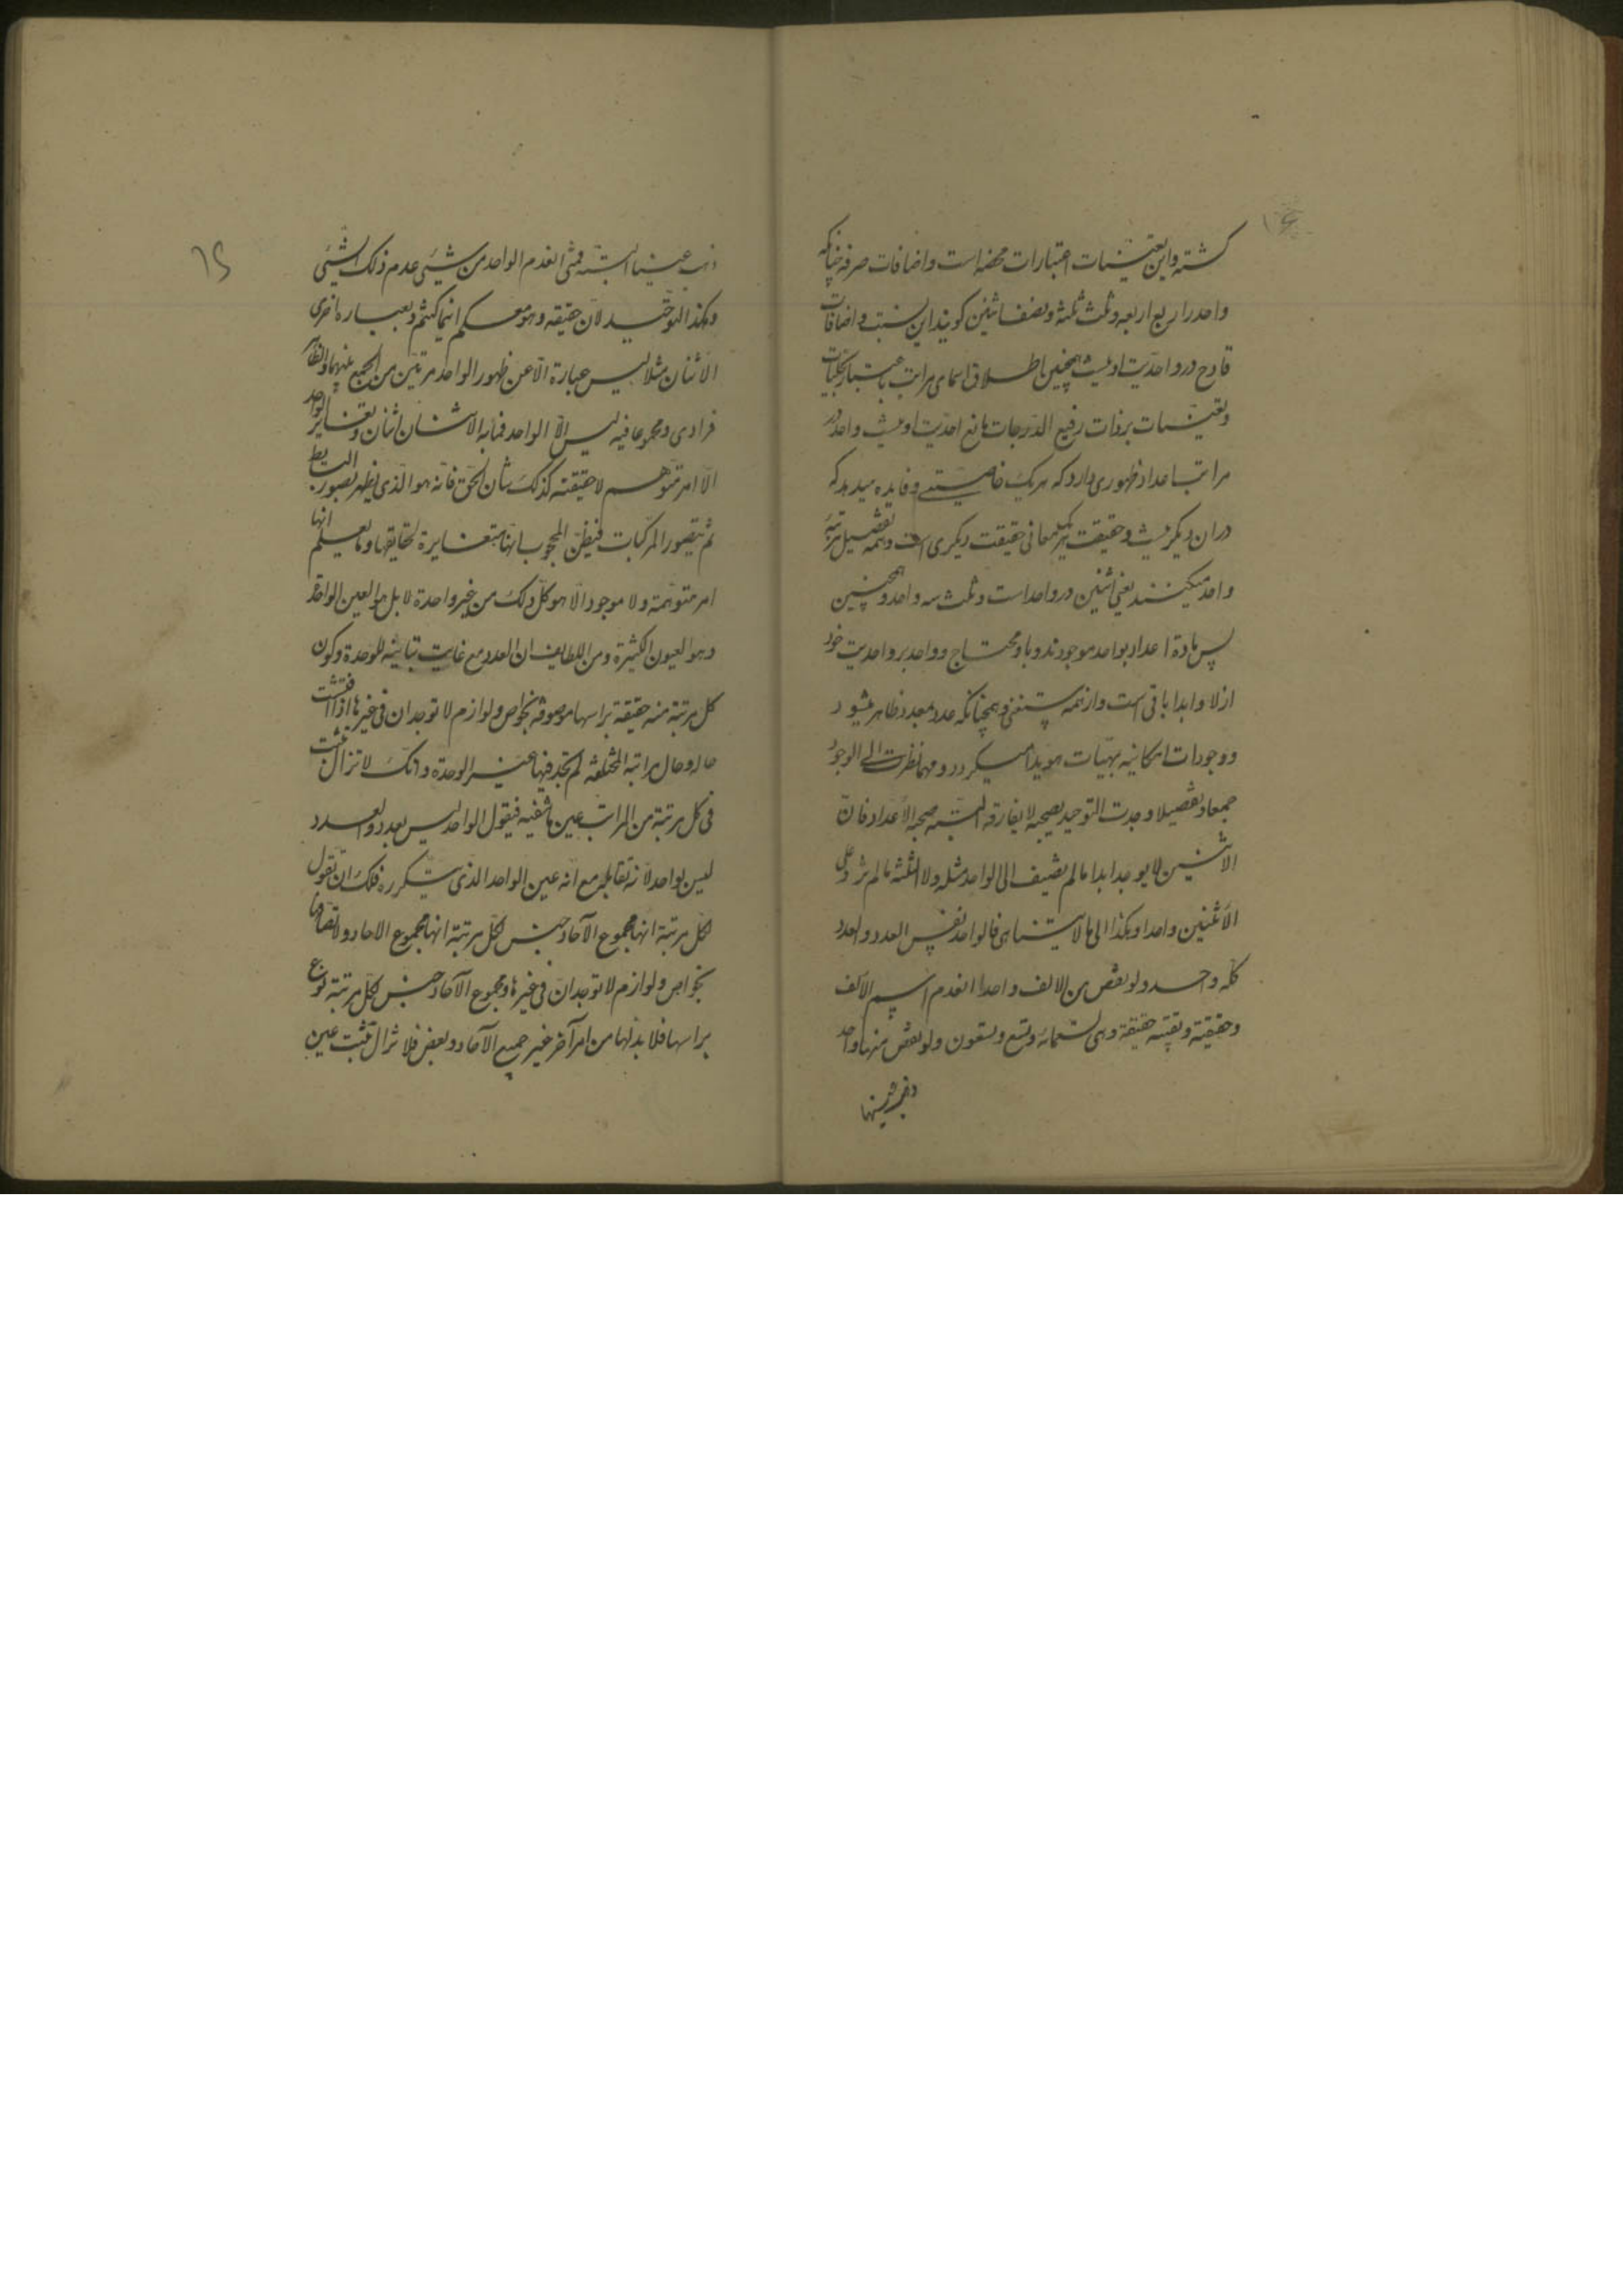 گشته و این تعینات اعتبارات محضه است و اضافات صرفه چنانکه
واحد را ربع اربعه و ثلث ثلثه و نصف اثنین گویند این نسبت و اضافات
قادح در واحدیت او نیست همچنین اطلاق اسمای مراتب باعتبار تجلیات
و تعینات بر ذات رفیع الدرجات مانع احدیت او نیست واحد در
مراتب اعداد ظهوری دارد که هر یک خاصیتی و فایده میدهد که
در ان دیگر نیست و حقیقت هر یک معانی حقیقت دیگری است و همه تفصیل مرتبه
واحد میکنند یعنی اثنین دو واحد است و ثلث سه واحد و همچنین
پس ماده اعداد بواحد موجودند و باو محتاج و واحد بر واحدیت خود
ازلا و ابدا باقی است و از همه مستغنی و همچنانکه عدد بعدد ظاهر میشود
و وجودات امکانیه بهیّات هویدا میگردد و مهما نظرت الی الوجود
جمعا و تفصیلا وجدت التوحید یصحبه لا یفارقه البته صحبه الاعداد فان
الاثنین لا یوجد ابدا ما لم یضیف الی الواحد مثله ولا الثلثه ما لم تزد علی
الاثنین واحدا و هکذا الی ما لا یتناهی فالواحد نفس العدد و العدد
کله واحد و لو نقص من الالف واحدا انعدم اسم الالف
و حقیقته و بقیته حقیقة وهی تسعمائه و تسع و تسعون ولو نقص منها واحد
ذهب عینها البته فمتی انعدم الواحد من شیئ عدم ذلک الشیئ
و هکذا التوحید لان حقیقه وهو معکم اینما کنتم و بعباره اخری
الاثنان مثلا لیس عبارة الا عن ظهور الواحد مرتین من الجمع بینهما و الظاهر
فرادی و مجموعا فیه لیس الا الواحد فما به الاثنان اثنان و تغایر الواحد
الا امر متوهم لا حقیقته کذلک شان الحق فانه هو الذی یظهر بصور البسایط
ثم بصور المرکبات فیظن المحجوب انها متغایرة بحقایقها و ما یعلم انها
امر متوهمة ولا موجود الا هو کل ذلک من غیر واحدة لا بل هو العین الواحد
وهو العیون الکثیرة و من اللطایف ان العدد مع غایت تباینه للوحدة و کون
کل مرتبة منه حقیقة براسها موصوفه بخواص و لوازم لا توجدان فی غیرها اذا فتشت
حاله و حال مراتبه المختلفه لم تجد فیها غیر الوحدة و انک لا تزال تثبت
فی کل مرتبة من المراتب عین ما تنفیه فیقول الواحد لیس بعدد و العدد
لیس بواحد لانه تقابله مع انه عین الواحد الذی یتکرره فلک ان تقول
لکل مرتبة انها مجموع الآحاد جنس لکل مرتبة انها مجموع الاحاد ولاتصافها
بخواص و لوازم لا توجدان فی غیرها و مجموع الآحاد جنس لکل مرتبة نوع
براسها فلا بد لها من امر آخر غیر جمیع الآحاد و لبعض فلا تزال تثبت عین